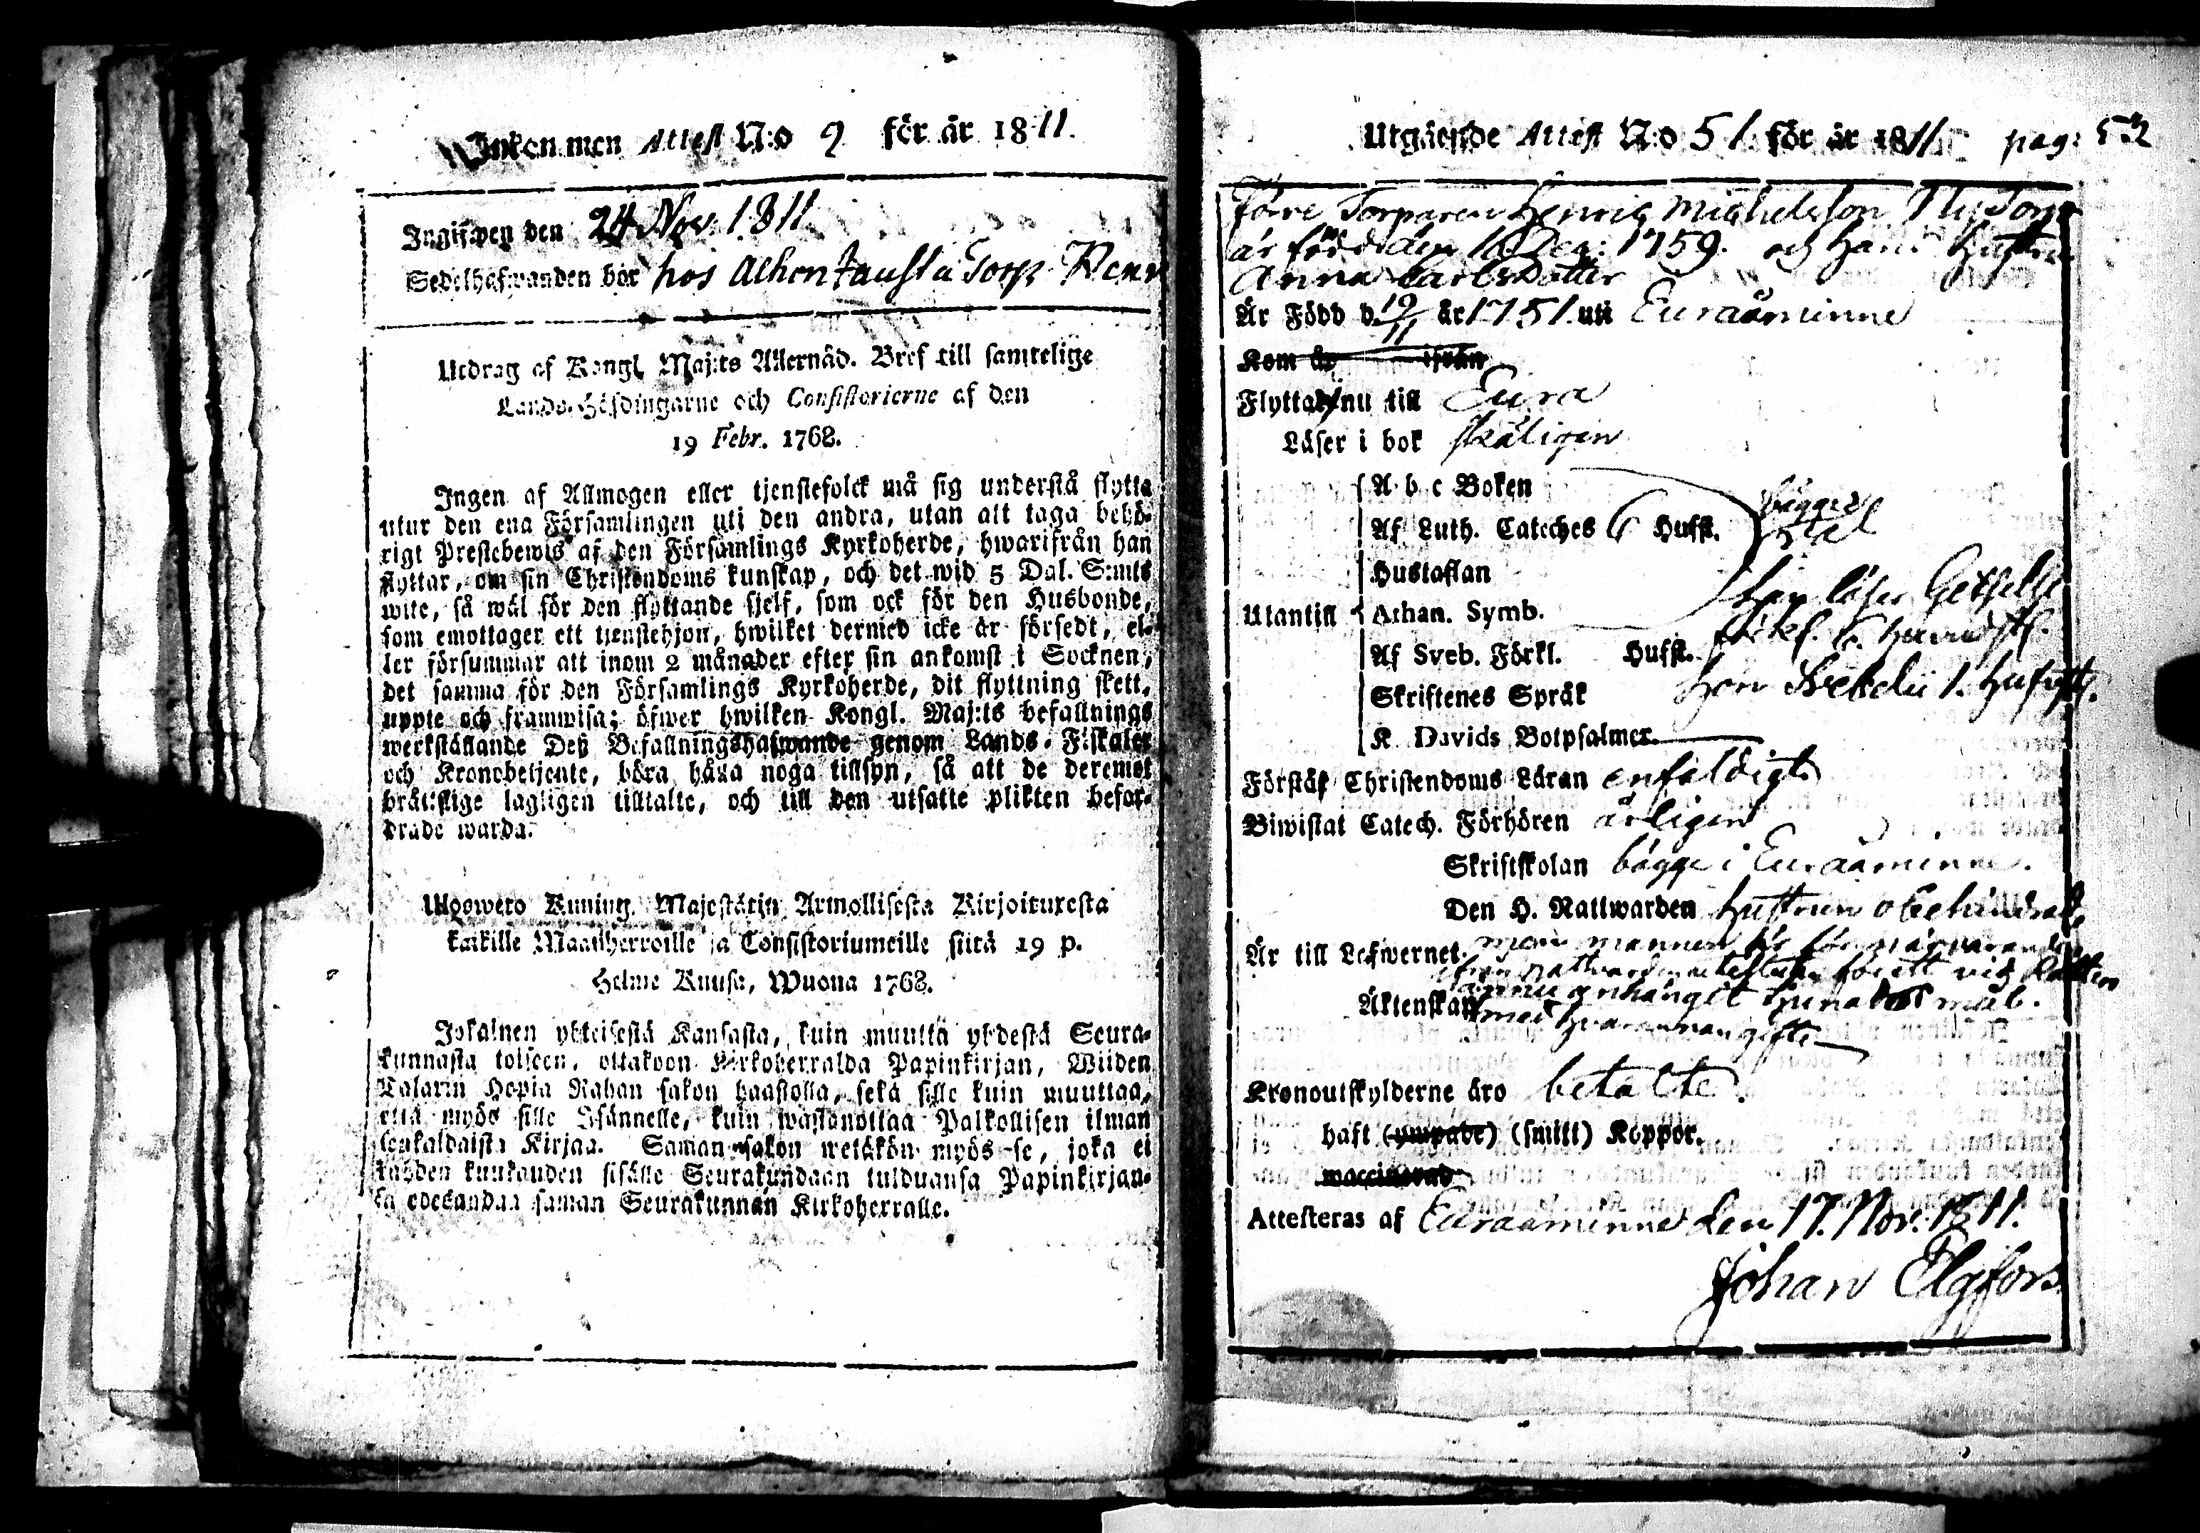 Inkommen Attest N:o 9 för år 1811.
Ingifwen den 24 Nov. 1811.
Sedelhafwanden bor hos Torp
Utdrag af Kongl. Maj:ts Allernåd. Bref till samtelige
Lands-Höfdingarne och Consistorierne af den
19 Febr. 1768.
Ingen af Allmogen eller tjenstefolck må sig understå flytta
utur den ena Församlingen uti den andra, utan att taga behö-
rigt Prestebewis af den Församlings Kyrkoherde, hwarifrån han
flyttar, om sin Christendoms kunskap, och det wid 5 Dal. S:mts
wite, så wäl för den flyttande sjelf, som ock för den Husbonde,
som emottager ett tjenstehjon, hwilket dermed icke är försedt, el-
ler försummar att inom 2 månader efter sin ankomst i Socknen,
det samma för den Församlings Kyrkoherde, dit flyttning skett,
uppte och framwisa; öfwer hwilken Kongl. Maj:ts befallnings
werkställande Deß Befallningshafwande genom Lands-Fiskaler
och Kronobetjente, böra hålla noga tillsyn, så att de deremot
brättslige lagligen tilltalte, och till den utsatte plikten befor-
drade warda.
Uloswero Kuning. Majestätin Armollisesta Kirjoituxesta
kaikille Maanherroille ja Consistoriumeille siitä 19 p.
Helme Kuusa, Wuona 1768.
Jokainen yhteisestä Kansasta, kuin muuttä yhdestä Seura-
kunnasta toiseen, ottakoon Kirkoherralda Papinkirjan, Wiiden
Talarin Hopia Rahan sakon haastolla, sekä sille kuin muuttaa,
että myös sille Isännelle, kuin wastanottaa Palkollisen ilman
senkaldaista Kirjaa. Saman sakon wetäkön myös se, joka ei
kahden kuukauden sisälle Seurakundaan tulduansa Papinkirjan-
sa edesandaa saman Seurakunnan Kirkoherralle.
Utgående Attest N:o 51 för år 1811 pag: 532
Förre Torparen Henric Michelsson NyTorp
är född den 16 Dec: 1759. och hans hustru
Anna Carlsdotter
Är Född d. 19/11 år 1751. uti Euraåminne
Kom år ifrån
Flyttar nu till Eura
Läser i bok skäligen
A b c Boken
Af Luth. Cateches 6 Hufst. bägge väl
Hustaflan
Utantill Athan. Symb. han läser
Af Sveb. Förkl. Hufst.
Skriftenes Språk hon Svebelii 1. hufvst.
K. Davids Botpsalmer.
Förstår Christendoms Läran enfaldigt
Biwistat Catech. Förhören årligen
Skriftskolan bägge i Euraåminne.
Den H. Nattwarden hustrun obehindrad,
Är till Lefwernet. men mannen är för närvarande
ifrån nattvarden utesluten för ett vid Rätten
ännu anhängit mål.
Äktenskap med hvarannan gifte
Kronoutskylderne äro betalte.
haft (ympade) (smitt) Koppor.
waccinerad
Attesteras af Euraåminne den 17. Nov: 1811.
Johan Elgfors